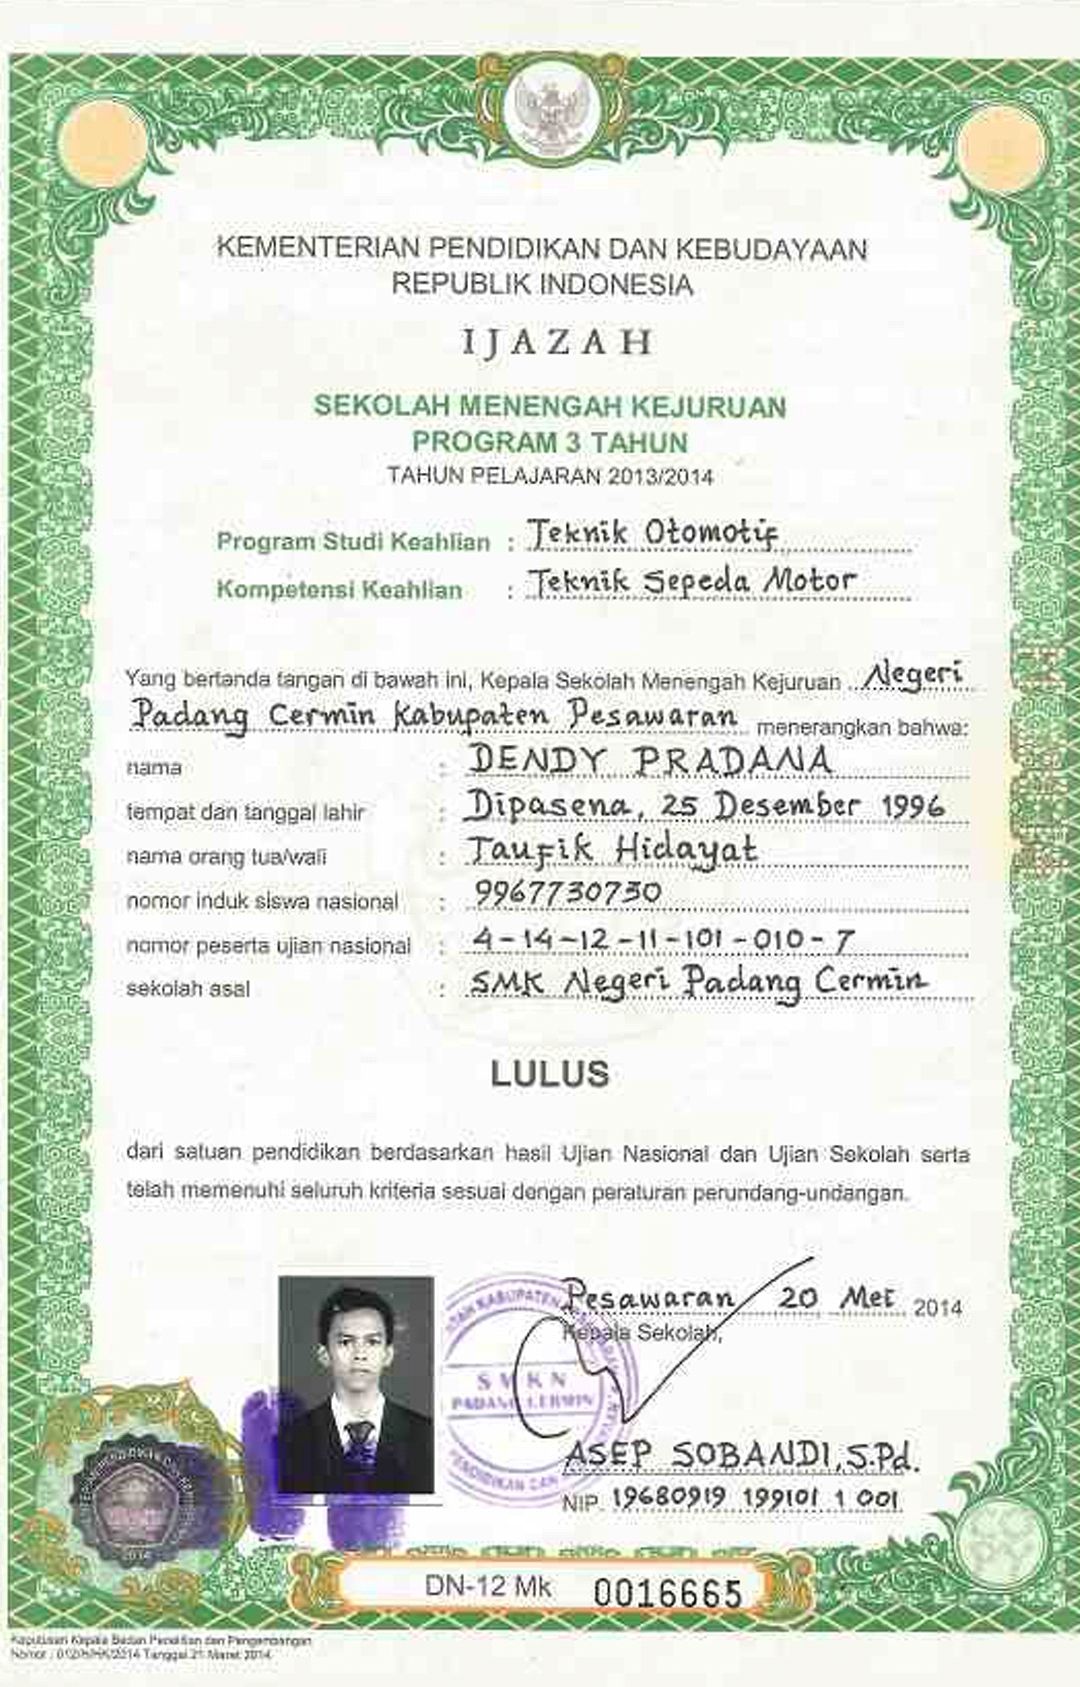 KEMENTERIAN PENDIDIKAN DAN KEBUDAYAAN
REPUBLIK INDONESIA
IJAZAH
SEKOLAH MENENGAH KEJURUAN
PROGRAM 3 TAHUN
TAHUN PELAJARAN 2013/2014
Program Studi Keahlian : Teknik Otomotif
Kompetensi Keahlian : Teknik Sepeda Motor
Yang bertanda tangan di bawah ini, Kepala Sekolah Menengah Kejuruan Negeri
Padang Cermin Kabupaten Pesawaran menerangkan bahwa:
nama : DENDY PRADANA
tempat dan tanggal lahir : Dipasena, 25 Desember 1996
nama orang tua/wali : Taufik Hidayat
nomor induk siswa nasional : 9967730730
nomor peserta ujian nasional : 4-14-12-11-101-010-7
sekolah asal : SMK Negeri Padang Cermin
LULUS
dari satuan pendidikan berdasarkan hasil Ujian Nasional dan Ujian Sekolah serta
telah memenuhi seluruh kriteria sesuai dengan peraturan perundang-undangan.
Pesawaran 20 Mei 2014
Kepala Sekolah,
KABUPATEN
SMKN
PADANG CERMIN
PENDIDIKAN DAN
ASEP SOBANDI, S.Pd.
NIP. 19680919 199101 1 001
2014
DN-12 Mk 0016665
Keputusan Kepala Badan Penelitian dan Pengembangan
Nomor : 012/H/HK/2014 Tanggal 21 Maret 2014